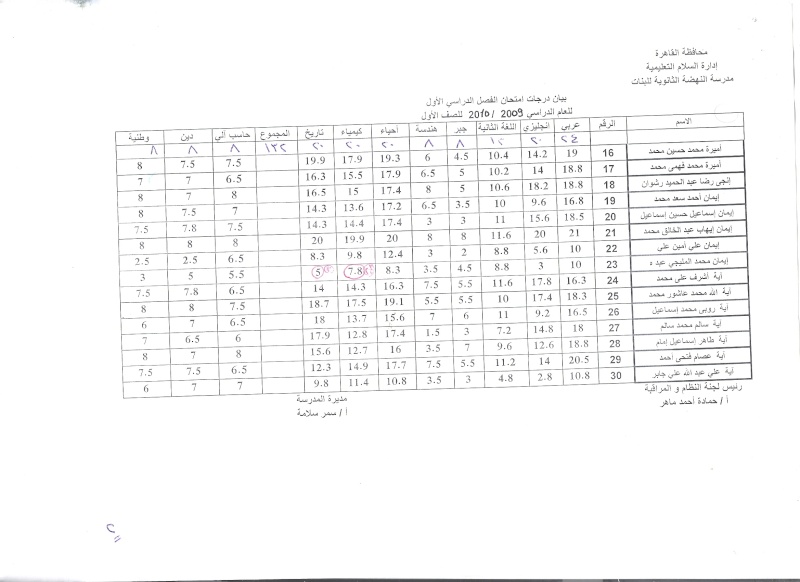 محافظة القاهرة
إدارة السلام التعليمية
مدرسة النهضة الثانوية للبنات
بيان درجات امتحان الفصل الدراسي الأول
للعام الدراسي 2009 / 2010 للصف الأول
الاسم الرقم عربي انجليزي اللغة الثانية جبر هندسة أحياء كيمياء تاريخ المجموع حاسب آلي دين وطنية
٢٤ ٢٠ ١٢ ٨ ٨ ٢٠ ٢٠ ٢٠ ١٣٢ ٨ ٨ ٨
أميرة محمد حسين محمد 16 19 14.2 10.4 4.5 6 19.3 17.9 19.9 7.5 7.5 8
أميرة محمد فهمى محمد 17 18.8 14 10.2 5 6.5 17.9 15.5 16.3 6.5 7 7
إنجى رضا عبد الحميد رشوان 18 18.8 18.2 10.6 5 8 17.4 15 16.5 8 7 8
إيمان أحمد سعد محمد 19 16.8 9.6 10 3.5 6.5 17.2 13.6 14.3 7 7.5 8
إيمان إسماعيل حسين إسماعيل 20 18.5 15.6 11 3 3 17.4 14.4 14.3 7.5 7.8 7.5
إيمان إيهاب عبد الخالق محمد 21 21 20 11.6 8 8 20 19.9 20 8 8 8
إيمان على أمين على 22 10 5.6 8.8 2 3 12.4 9.8 8.3 6.5 2.5 2.5
إيمان محمد المليجي عبد ه 23 10 3 8.8 4.5 3.5 8.3 7.8 5 5.5 5 3
آية أشرف على محمد 24 16.3 17.8 11.6 5.5 7.5 16.3 14.3 14 6.5 7.8 7.5
آية الله محمد عاشور محمد 25 18.3 17.4 10 5.5 5.5 19.1 17.5 18.7 7.5 8 8
آية روبى محمد إسماعيل 26 16.5 9.2 11 6 7 15.6 13.7 18 6.5 7 6
آية سالم محمد سالم 27 18 14.8 7.2 3 1.5 17.4 12.8 17.9 6 6.5 7
آية طاهر إسماعيل إمام 28 18.8 12.6 9.6 7 3.5 16 12.7 15.6 7 7 8
آية عصام فتحى احمد 29 20.5 14 11.2 5.5 7.5 17.7 14.9 12.3 6.5 7.5 7.5
آية علي عبد الله علي جابر 30 10.8 2.8 4.8 3 3.5 10.8 11.4 9.8 7 7 6
رئيس لجنة النظام و المراقبة مديرة المدرسة
أ / حمادة أحمد ماهر أ / سمر سلامة
٢